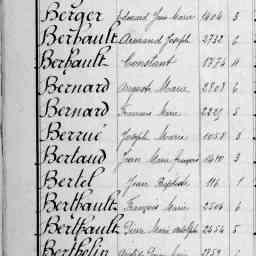 Berger Edouard Jean Marie 1404 3
Berhault Armand Joseph 2732 6
Berhault Constant 1876 4
Bernard Auguste Marie 2803 6
Bernard Francois Marie 2225 5
Berrué Joseph Marie 1058 3
Bertaud Jean Marie françois 1410 3
Bertel Jean Baptiste 116 1
Berthault François Marie 2504 6
Berthault Pierre Marie Adolph 2454 5
Berthelin